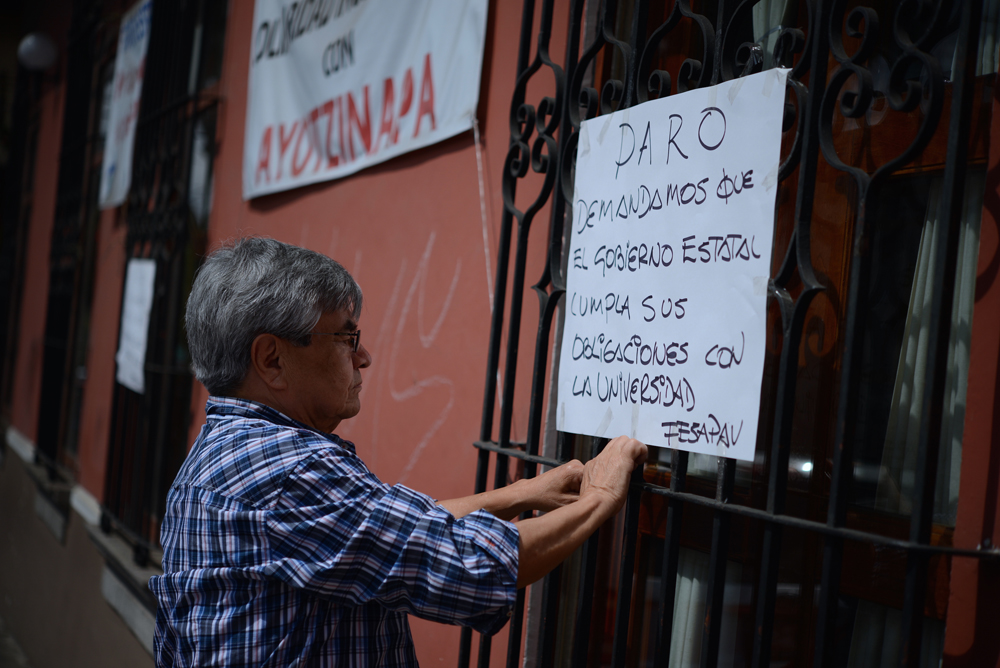 CON
AYOTZINAPA
PARO
DEMANDAMOS QUE
EL GOBIERNO ESTATAL
CUMPLA SUS
OBLIGACIONES CON
LA UNIVERSIDAD
FESAPAUV